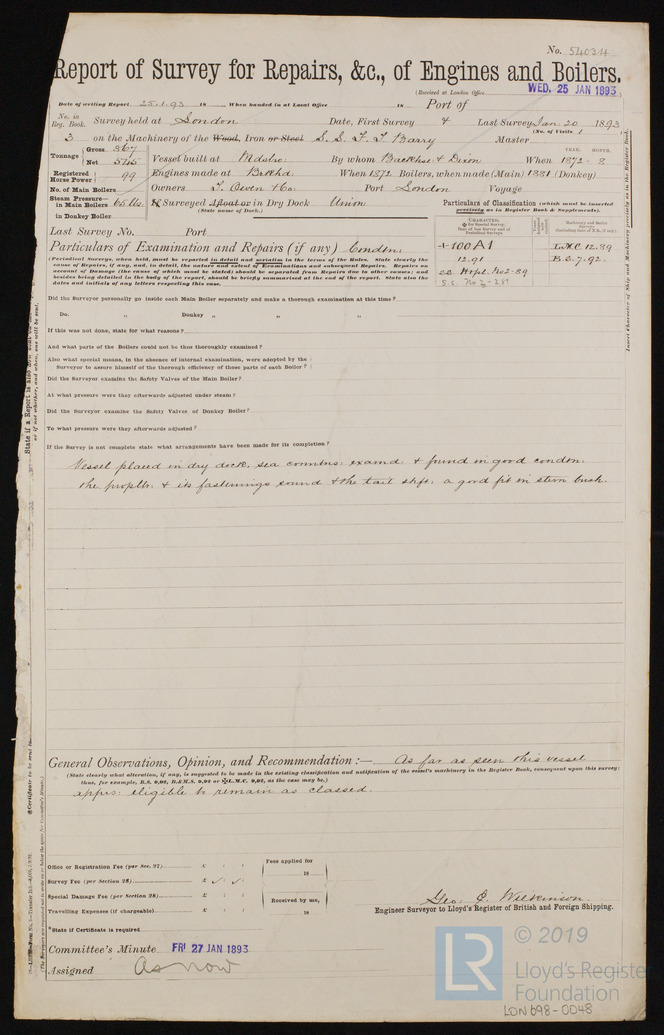 No. 54034
Report of Survey for Repairs, &c., of Engines and Boilers.
(Received at London Office WED. 25 JAN 1893
Date of writing Report 25.1.93 18 When handed in at Local Office 18 Port of
No. in Reg. Book. Survey held at London Date, First Survey 4 Last Survey Jan. 20 1893
(No. of Visits 1
3 on the Machinery of the Wood, Iron or Steel S.S. F. T. Barry Master
Tonnage Gross 867
Net 545
Vessel built at Mdsbro: By whom Backhse & Dixon When YEAR. 1872 MONTH. 8
Registered Horse Power 99 Engines made at When 1872 Boilers, when made (Main) 1881 (Donkey)
No. of Main Boilers Owners T. Owen & Co. Port London Voyage
Steam Pressure in Main Boilers 65 lbs. If Surveyed Afloat or in Dry Dock Union
(State name of Dock.)
in Donkey Boiler
Particulars of Classification (which must be inserted precisely as in Register Book & Supplements).
Last Survey No. Port
Particulars of Examination and Repairs (if any) Condn.
+100A1 L.M.C. 12.89
12.91 B.S. 7.92
(Periodical Surveys, when held, must be reported in detail and seriatim in the terms of the Rules. State clearly the
cause of Repairs, if any, and, in detail, the nature and extent of Examinations and subsequent Repairs. Repairs on
account of Damage (the cause of which must be stated) should be separated from Repairs due to other causes; and
besides being detailed in the body of the report, should be briefly summarised at the end of the report. State also the
dates and initials of any letters respecting this case.
Did the Surveyor personally go inside each Main Boiler separately and make a thorough examination at this time?
Do. " Donkey " " " ?
If this was not done, state for what reasons?
And what parts of the Boilers could not be thus thoroughly examined?
Also what special means, in the absence of internal examination, were adopted by the
Surveyor to assure himself of the thorough efficiency of those parts of each Boiler?
Did the Surveyor examine the Safety Valves of the Main Boiler?
At what pressure were they afterwards adjusted under steam?
Did the Surveyor examine the Safety Valves of Donkey Boiler?
To what pressure were they afterwards adjusted?
If the Survey is not complete state what arrangements have been made for its completion?
Vessel placed in dry dock, sea connctns: examd: & found in good condtn:
the propllr: & its fastenings sound & the tail shft: a good fit in stern bush.
General Observations, Opinion, and Recommendation:— As far as seen this vessel
(State clearly what alteration, if any, is suggested to be made in the existing classification and notification of the vessel's machinery in the Register Book, consequent upon this survey:
thus, for example, B.S. 9,92, B.&M.S. 9,92 or L.M.C. 9,92, as the case may be.)
apprs: eligible to remain as classed.
Office or Registration Fee (per Sec. 27) £ : :
Fees applied for
18
Survey Fee (per Section 28) £
Special Damage Fee (per Section 28) £ : :
Received by me,
Travelling Expenses (if chargeable) £ : :
18
Geo. C. Wilkinson
Engineer Surveyor to Lloyd's Register of British and Foreign Shipping.
*State if Certificate is required
Committee's Minute FRI 27 JAN 1893
Assigned As now
LR © 2019
Lloyd's Register
Foundation
LON698-0048